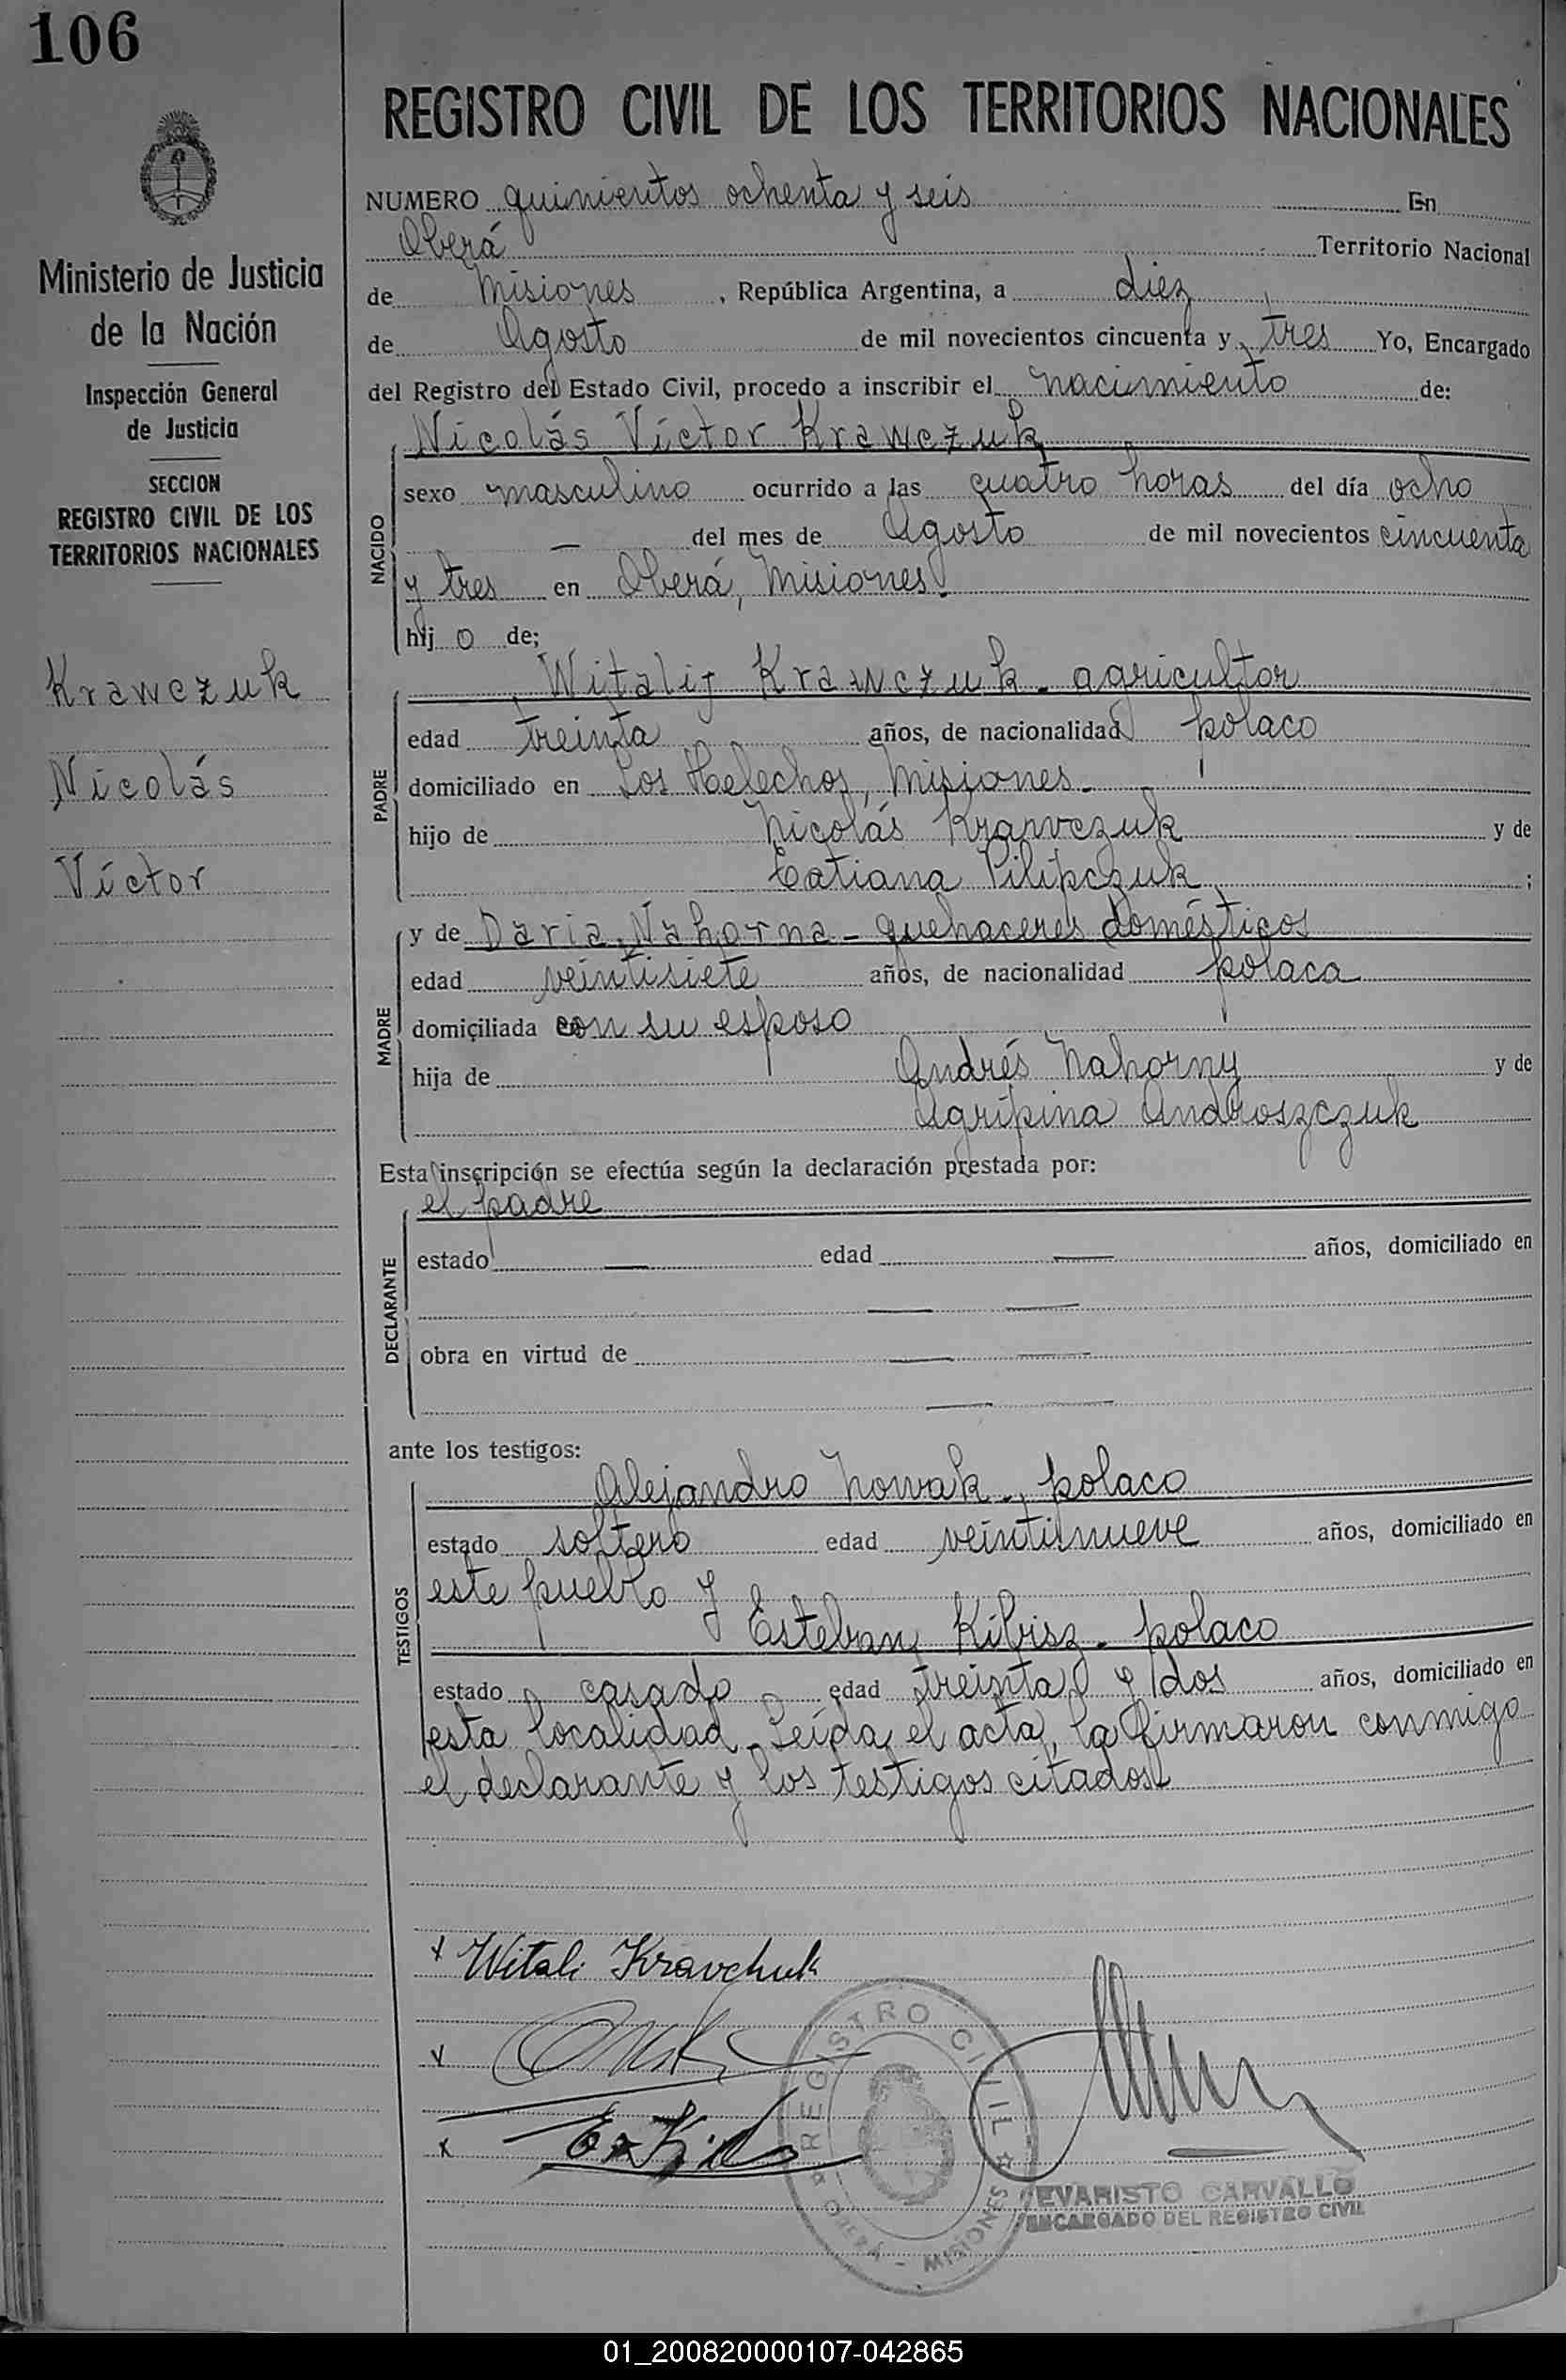 106
Ministerio de Justicia
de la Nación
Inspección General
de Justicia
SECCION
REGISTRO CIVIL DE LOS
TERRITORIOS NACIONALES
Krawczuk
Nicolás
Víctor
REGISTRO CIVIL DE LOS TERRITORIOS NACIONALES
NUMERO quinientos ochenta y seis En
Oberá Territorio Nacional
de Misiones, República Argentina, a diez
de Agosto de mil novecientos cincuenta y tres Yo, Encargado
del Registro del Estado Civil, procedo a inscribir el nacimiento de:
NACIDO
Nicolás Víctor Krawczuk
sexo masculino ocurrido a las cuatro horas del día ocho
— del mes de Agosto de mil novecientos cincuenta
y tres en Oberá, Misiones.
hijo de;
PADRE
Witalij Krawczuk - agricultor
edad treinta años, de nacionalidad polaco
domiciliado en Los Helechos, Misiones.
hijo de Nicolás Krawczuk y de
Tatiana Pilipczuk;
MADRE
y de Daria Nahorna - quehaceres domésticos
edad veintisiete años, de nacionalidad polaca
domiciliada con su esposo
hija de Andrés Nahorny y de
Agripina Androszczuk
Esta inscripción se efectúa según la declaración prestada por:
DECLARANTE
el padre
estado — edad — años, domiciliado en
— —
obra en virtud de — —
— —
ante los testigos:
TESTIGOS
Alejandro Nowak - polaco
estado soltero edad veintinueve años, domiciliado en
este pueblo y
Esteban Kibisz - polaco
estado casado edad treinta y dos años, domiciliado en
esta localidad. Leída el acta, la firmaron conmigo
el declarante y los testigos citados
x Witali Kravchuk
REGISTRO CIVIL
OBERA - MISIONES
EVARISTO CARVALLO
ENCARGADO DEL REGISTRO CIVIL
01_200820000107-042865